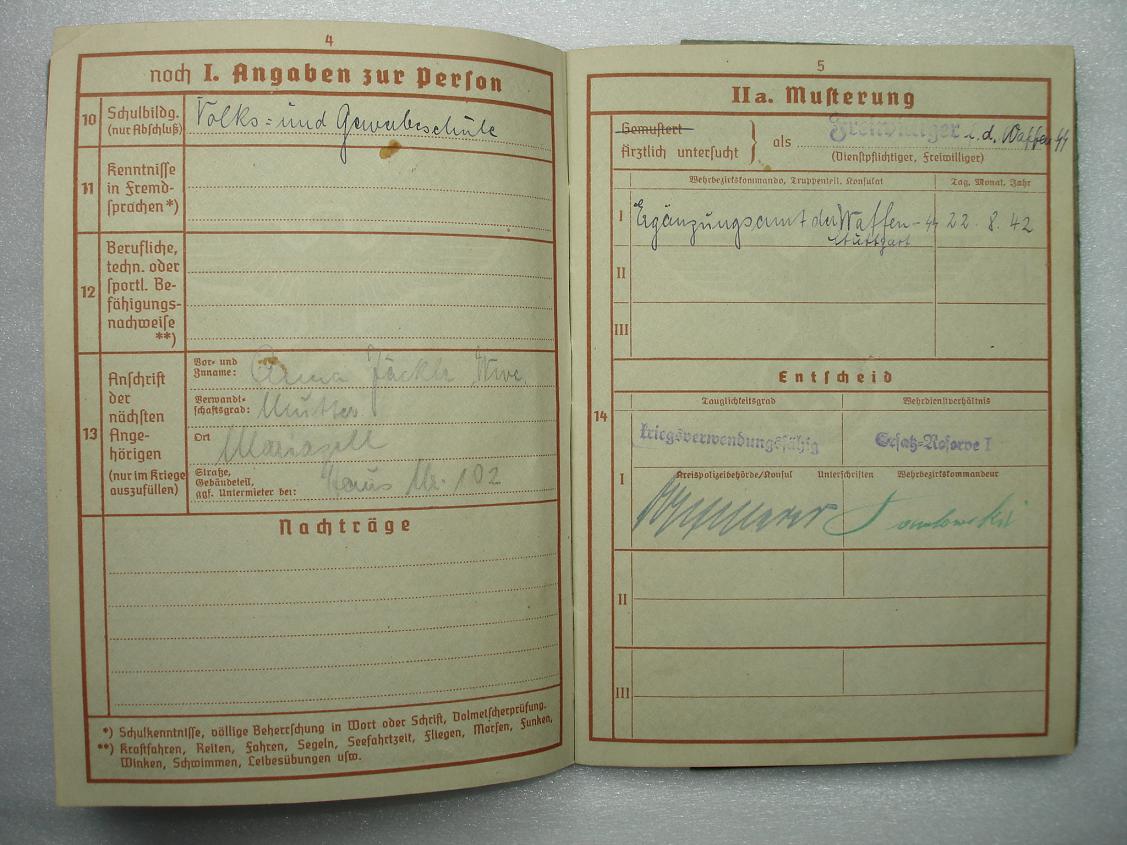 4
noch I. Angaben zur Person
10 Schulbildg. (nur Abschluß)
Volks- und Gewerbeschule
11 Kenntnisse in Fremd-
sprachen*)
12 Berufliche,
techn. oder
sportl. Be-
fähigungs-
nachweise
**)
13 Anschrift
der
nächsten
Ange-
hörigen
(nur im Kriege
auszufüllen)
Vor- und
Zuname: Anna Jäckle, Wwe.
Verwandt-
schaftsgrad: Mutter
Ort Mariazell
Straße,
Gebäudeteil,
ggf. Untermieter bei: Haus Nr. 102
Nachträge
*) Schulkenntnisse, völlige Beherrschung in Wort oder Schrift, Dolmetscherprüfung.
**) Kraftfahren, Reiten, Fahren, Segeln, Seefahrtzeit, Fliegen, Morsen, Funken,
Winken, Schwimmen, Leibesübungen usw.
5
IIa. Musterung
Gemustert
Ärztlich untersucht } als Freiwilliger i. d. Waffen SS
(Dienstpflichtiger, Freiwilliger)
Wehrbezirkskommando, Truppenteil, Konsulat
Tag, Monat, Jahr
I Ergänzungsamt der Waffen-SS 22. 8. 42
Stuttgart
II
III
Entscheid
14
Tauglichkeitsgrad
Wehrdienstverhältnis
kriegsverwendungsfähig
Ersatz-Reserve I
I
Kreispolizeibehörde/Konsul Unterschriften Wehrbezirkskommandeur
II
III